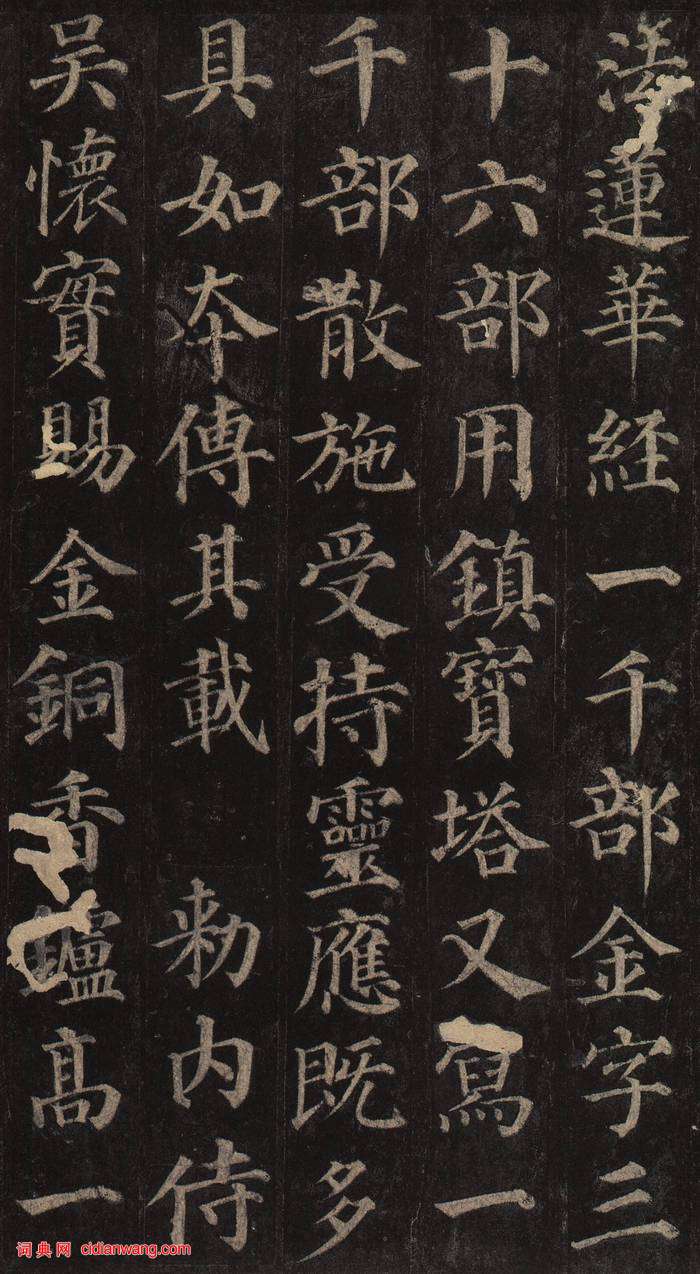 法蓮華経一千部金字三
十六部用鎮寶塔又寫一
千部散施受持靈應既多
具如夲傳其載 勅内侍
吴懷實賜金銅香鑪髙一
词典网 cidianwang.com